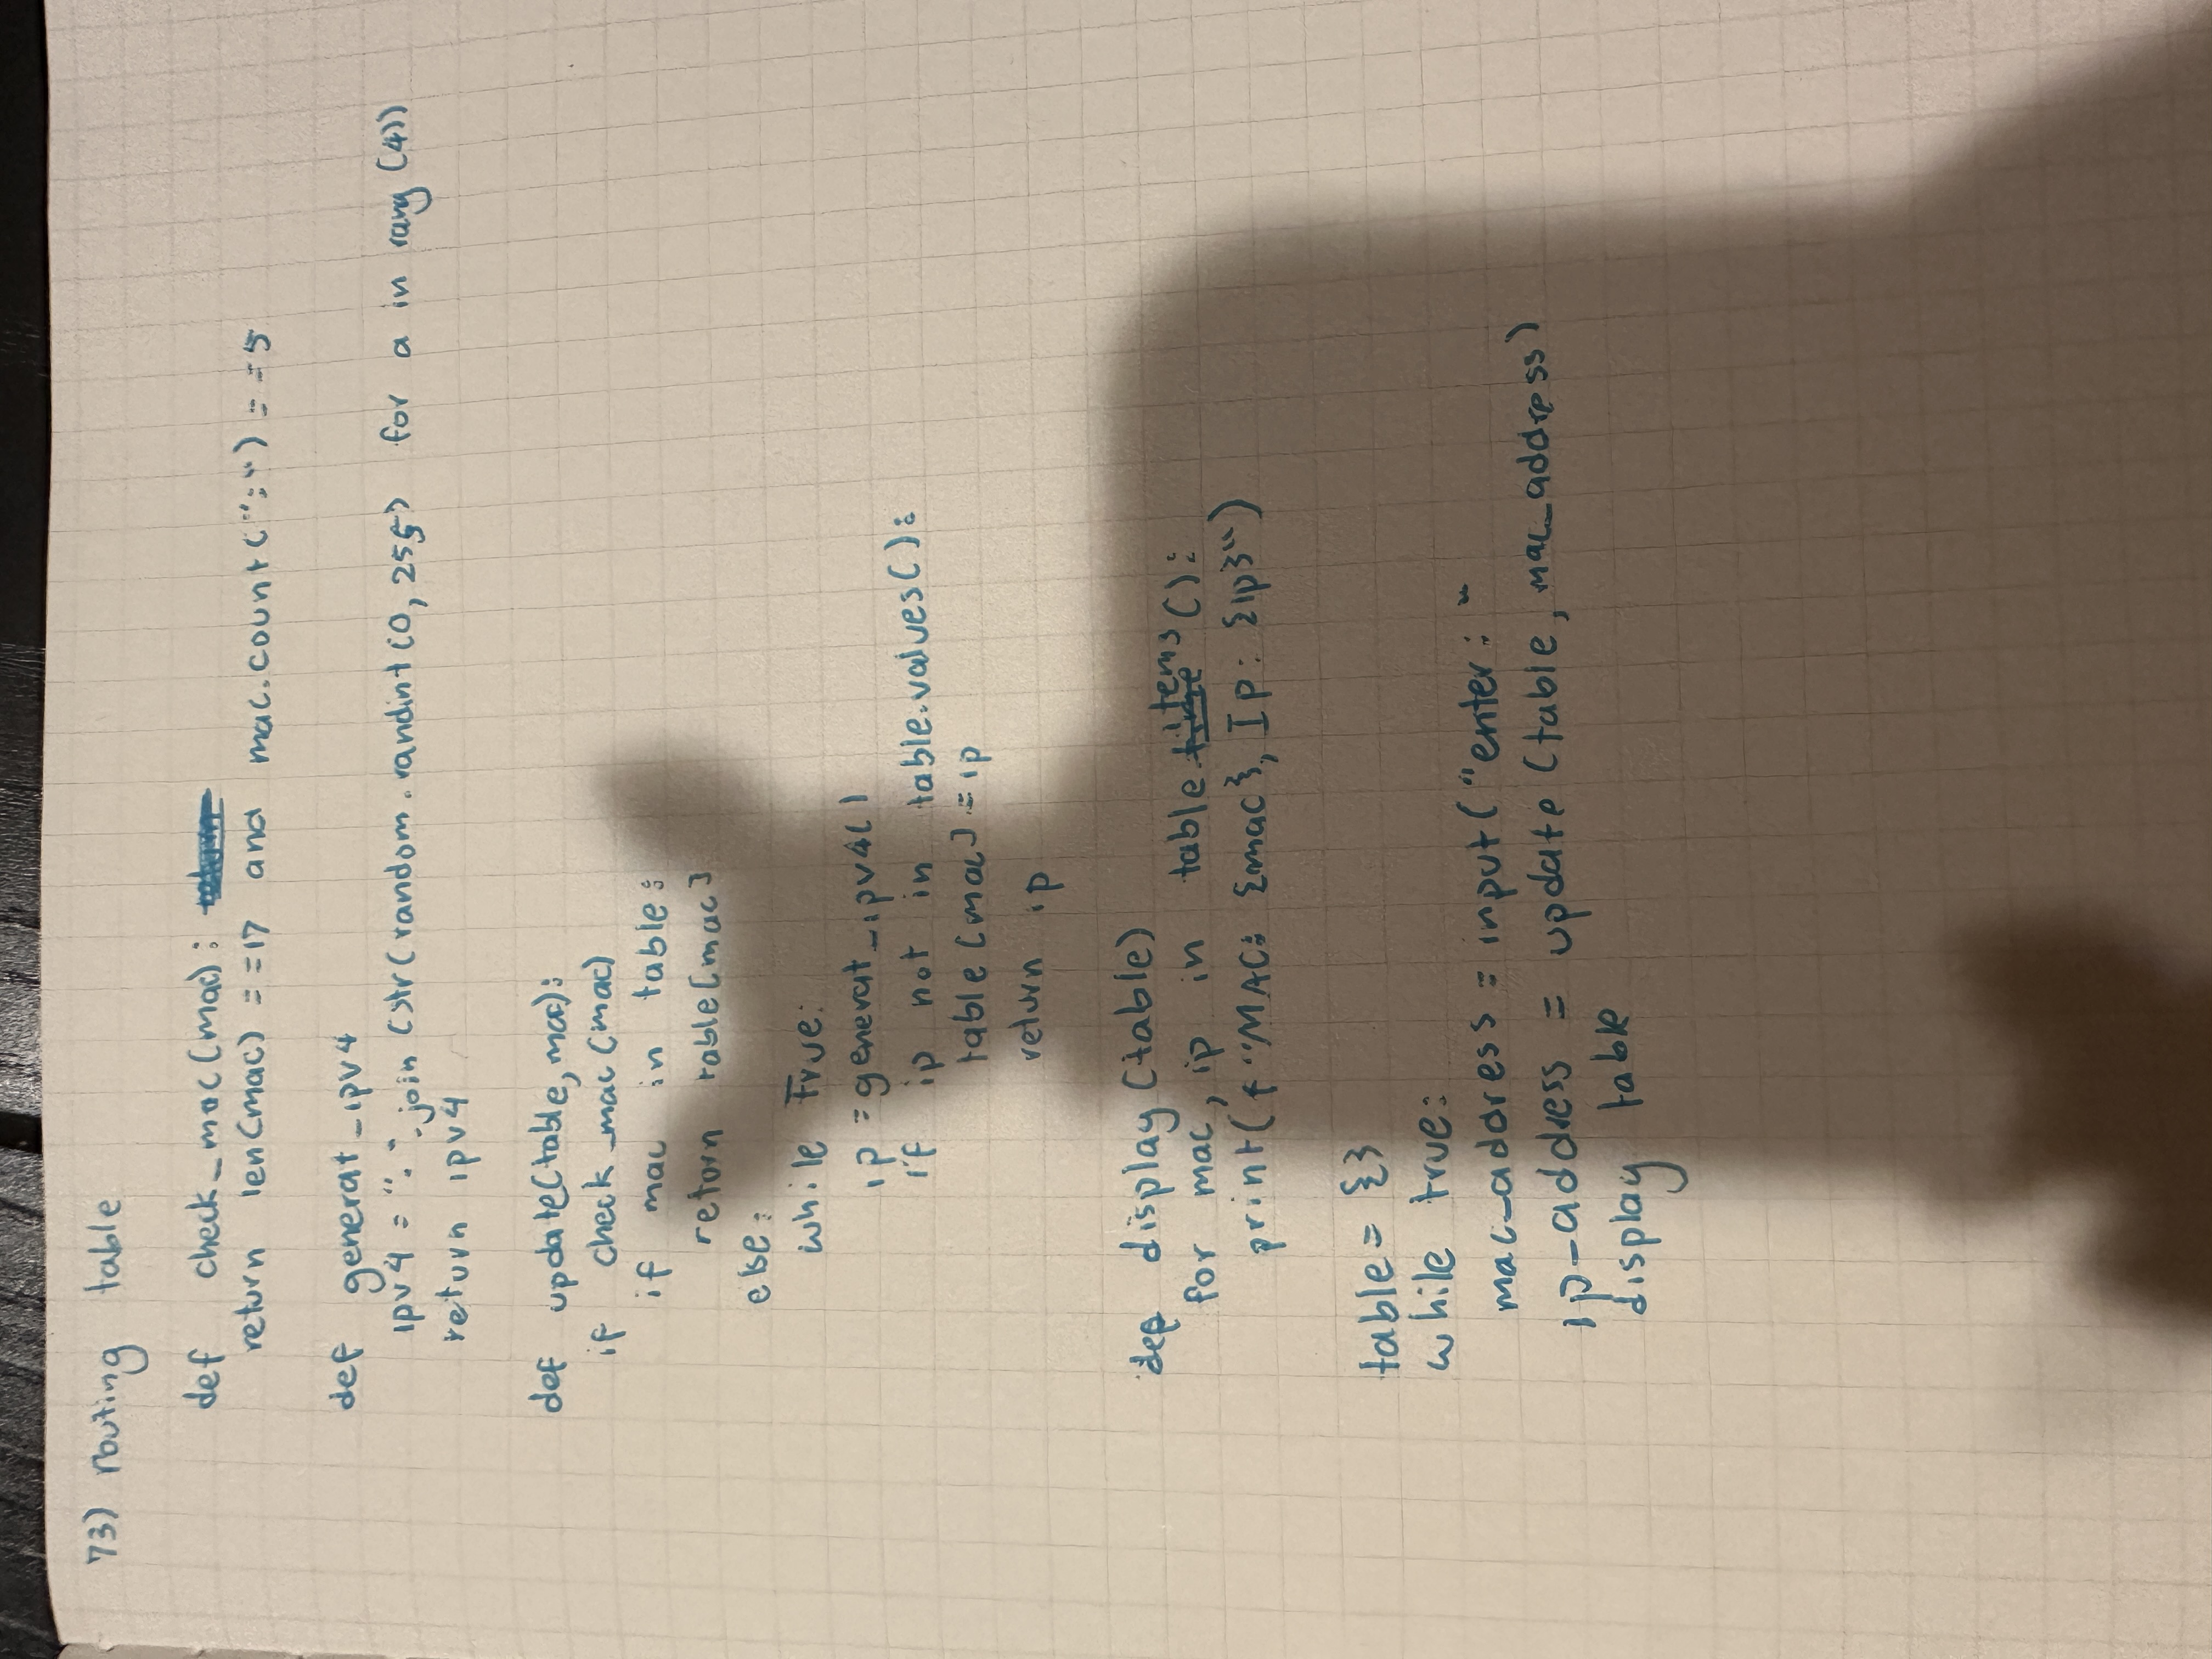 73) routing table
def check_mac(mac):
return len(mac) == 17 and mac.count(":") == 5
def generat_ipv4
ipv4 = ".".join (str(random.randint(0, 255) for a in rang (4))
return ipv4
def update(table, mac):
if check_mac(mac)
if mac in table:
return table[mac]
else:
while True:
ip = generat_ipv4()
if ip not in table.values():
table[mac] = ip
return ip
def display(table)
for mac, ip in table.items():
print(f"MAC: {mac}, Ip: {ip}")
table = {}
while true:
mac_address = input("enter: "
ip_address = update(table, mac_address)
display table